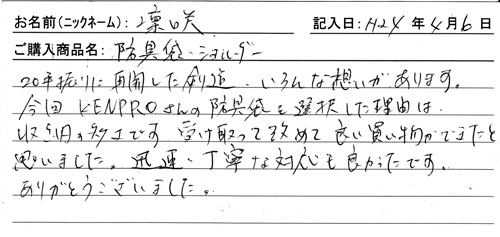 お名前(ニックネーム): 凛咲 記入日: H24年4月6日
ご購入商品名: 防具袋・ショルダー
20年振りに再開した剣道、いろんな想いがあります。
今回KENPROさんの防具袋を選択した理由は、
収納の多さです 受け取って改めて良い買い物ができたと
思いました。迅速・丁寧な対応も良かったです。
ありがとうございました。